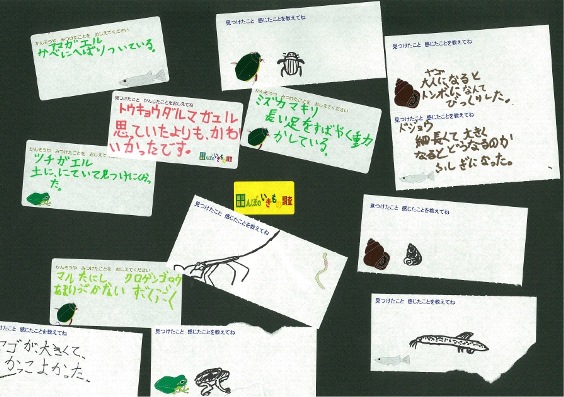 かんそうや みつけたことを おしえてください
ヌマガエル
かべにへばりついている。
見つけたこと 感じたことを教えてね
見つけたこと 感じたことを教えてね
ヤゴ
大人になると
トンボになんて
びっくりした。
ドジョウ
細長くて大きく
なるとどうなるのか
ふしぎになった。
見つけたこと かんじたことをおしえてね
トウキョウダルマガエル
思っていたよりも、かわ
いかったです。
かんそうや みつけたことを おしえてください
ミズカマキリ
長い足をすばやく動
かしている。
かんそうや みつけたことを おしえてください
ツチガエル
土に、にていて見つけにくかっ
た。
田んぼのいきもの調査
見つけたこと 感じたことを教えてね
見つけたこと 感じたことを教えてね
かんそうや みつけたことを おしえてください
マルたにし クロゲンゴロウ
あまりうごかない すごくうごく
見つけたこと 感じたことを教えてね
見つけたこと 感じたことを教えてね
ゴが、大きくて、
かっこよかった。
見つけたこと 感じたことを教えてね